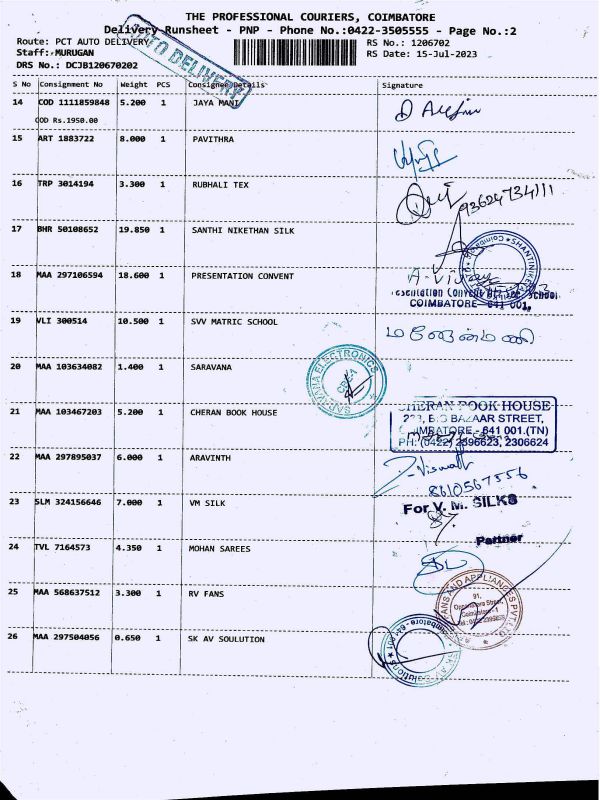 THE PROFESSIONAL COURIERS, COIMBATORE
Delivery Runsheet - PNP - Phone No.:0422-3505555 - Page No.:2
Route: PCT AUTO DELIVERY RS No.: 1206702
Staff: MURUGAN RS Date: 15-Jul-2023
DRS No.: DCJB120670202
AUTO DELIVERY
S No Consignment No Weight PCS Consignee Details Signature
14 COD 1111859848 5.200 1 JAYA MANI
COD Rs.1950.00
15 ART 1883722 8.000 1 PAVITHRA
16 TRP 3014194 3.300 1 RUBHALI TEX
9362473411
17 BHR 50108652 19.850 1 SANTHI NIKETHAN SILK
18 MAA 297106594 18.600 1 PRESENTATION CONVENT
COIMBATORE-641 001,
19 VLI 300514 10.500 1 SVV MATRIC SCHOOL
20 MAA 103634082 1.400 1 SARAVANA
SARAVANA ELECTRONICS
CBE-1
21 MAA 103467203 5.200 1 CHERAN BOOK HOUSE
CHERAN BOOK HOUSE
BIG BAZAAR STREET,
COIMBATORE - 641 001.(TN)
PH: (0422) 2396623, 2306624
22 MAA 297895037 6.000 1 ARAVINTH
8610567556
23 SLM 324156646 7.000 1 VM SILK
For V. M. SILKS
Partner
24 TVL 7164573 4.350 1 MOHAN SAREES
25 MAA 568637512 3.300 1 RV FANS
FANS AND APPLIANCES PVT LTD
91,
Coimbatore - 1
26 MAA 297504056 0.650 1 SK AV SOULUTION